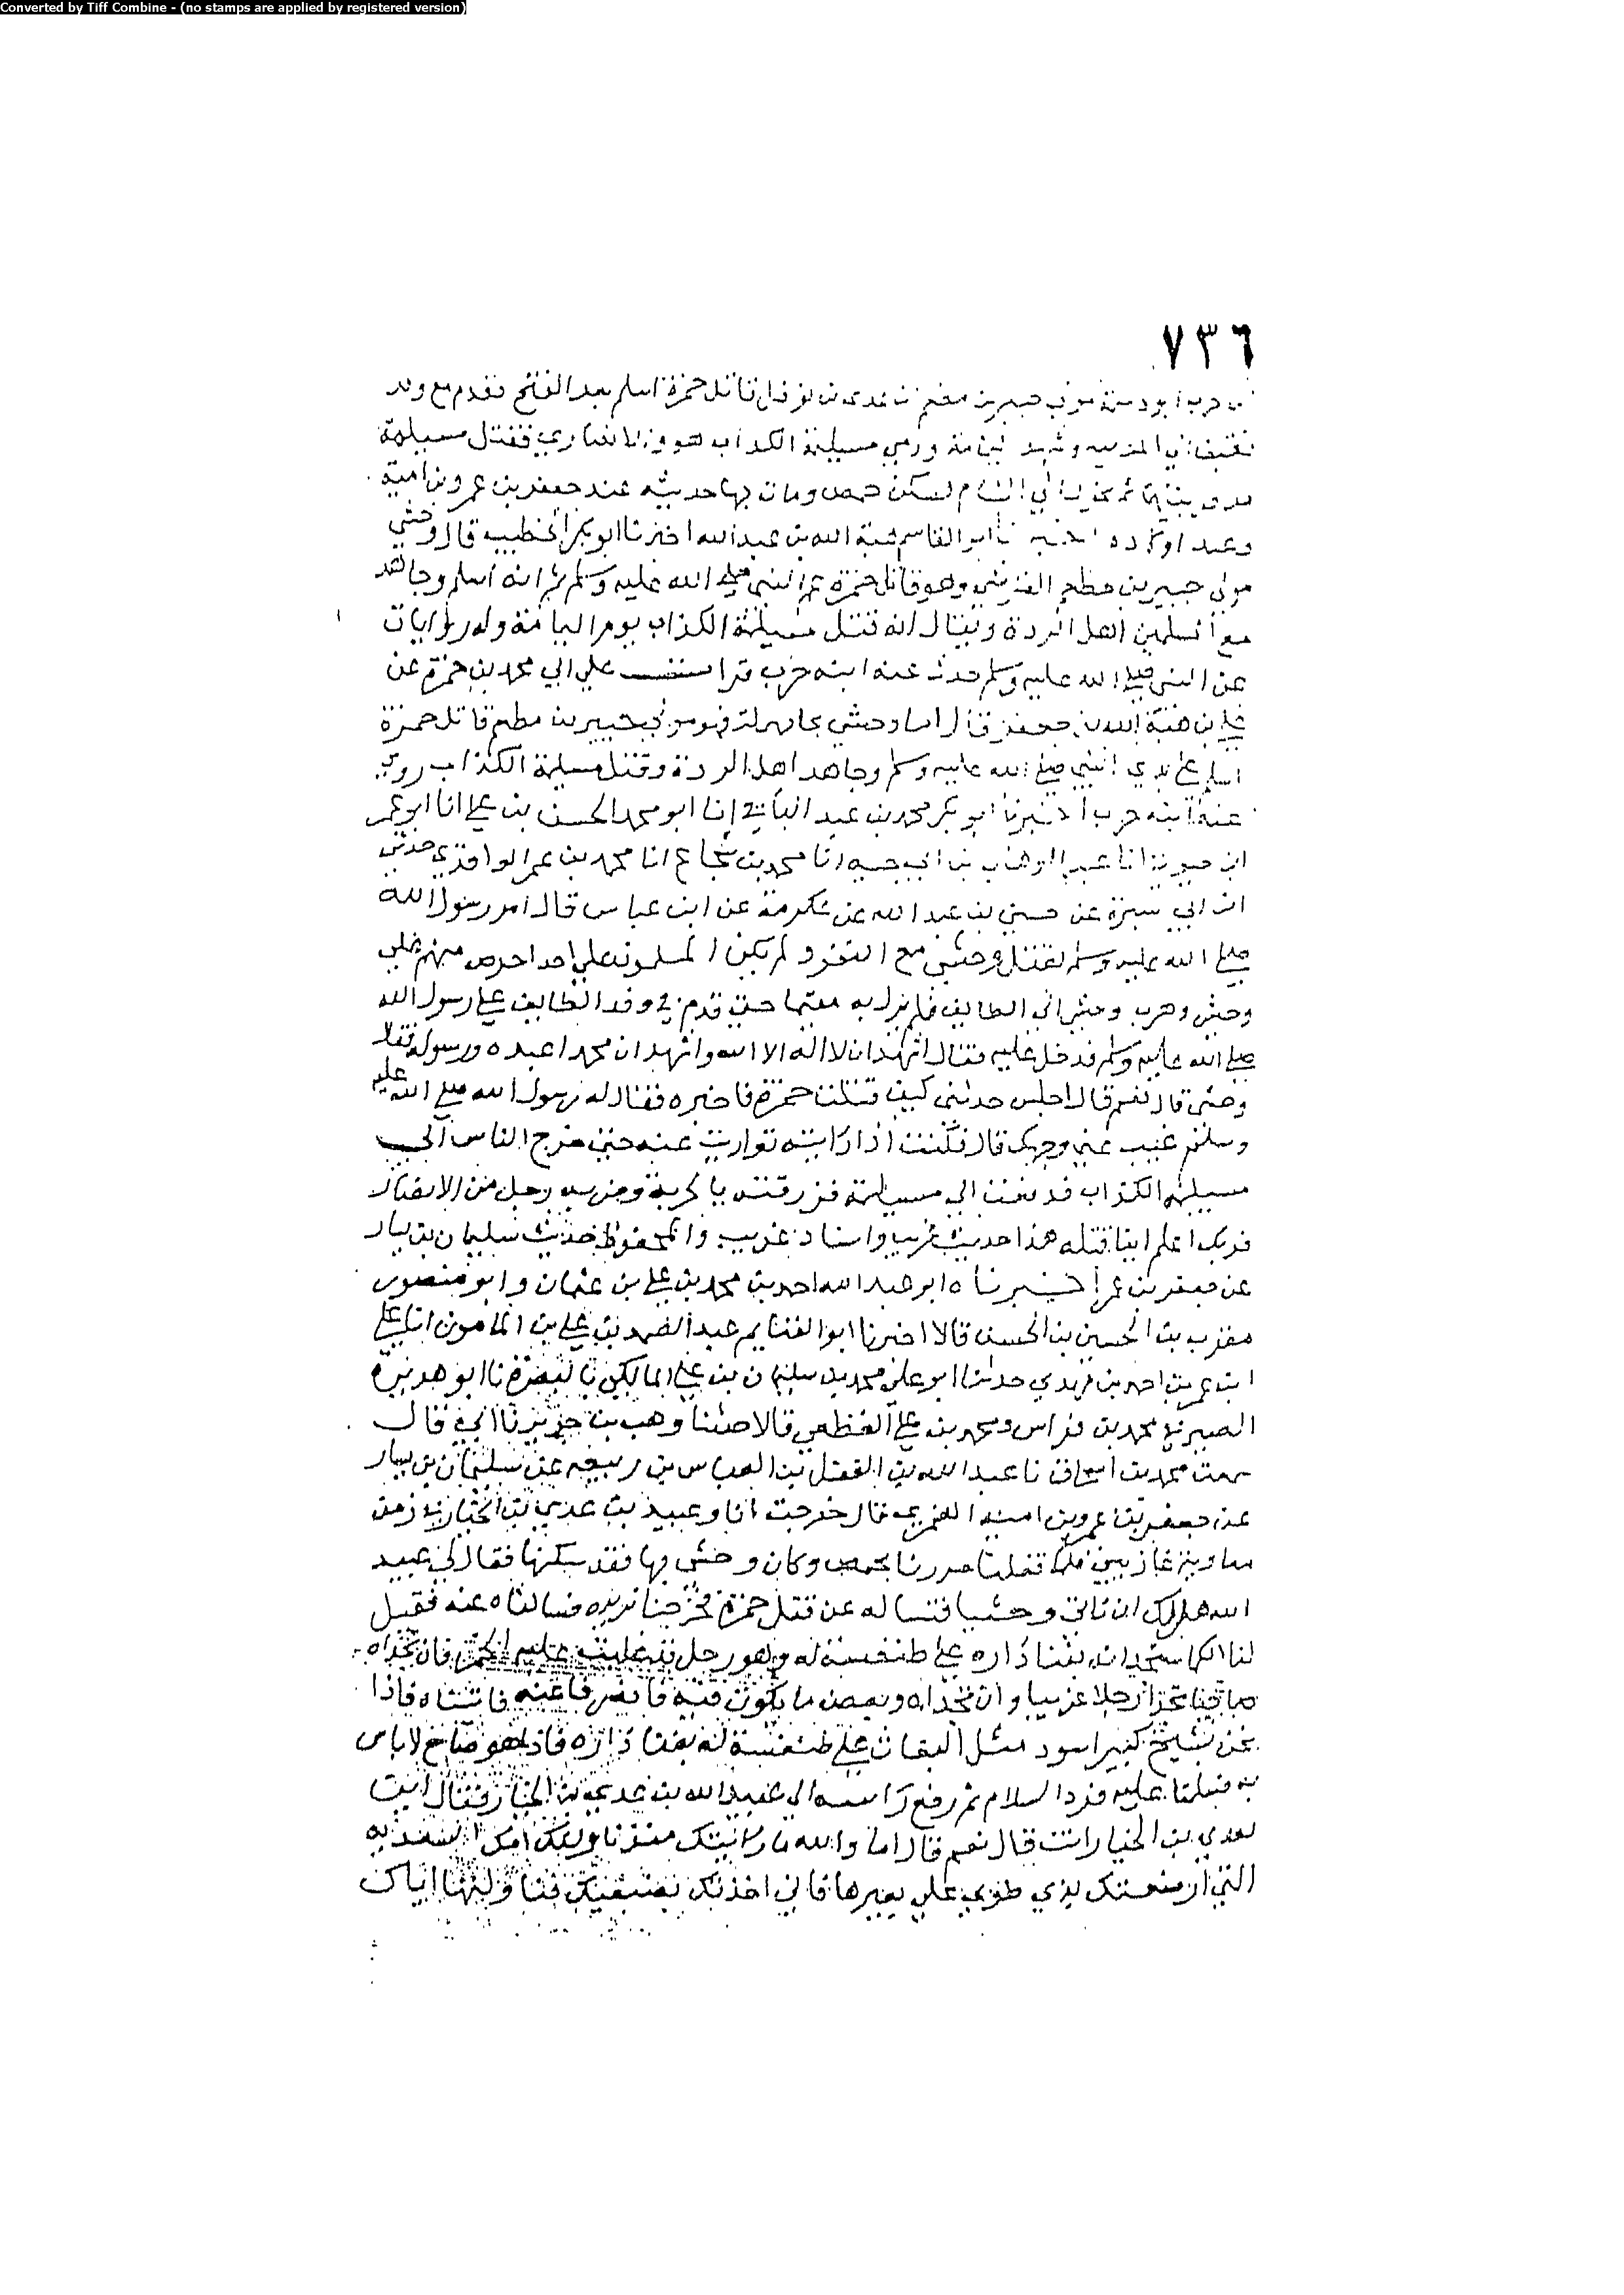 Converted by Tiff Combine - (no stamps are applied by registered version)
٧٣٦
بن حرب ابو دسمة مولى جبير بن مطعم بن عدي بن نوفل قاتل حمزة اسلم بعد الفتح فقدم مع وفد
ثقيف الى المدينة وشهد اليمامة ورمى مسيلمة الكذاب هو والانصاري فقتل مسيلمة
الى الشام فسكن حمص ومات بها حديثه عند جعفر بن عمرو بن امية
ابو القاسم هبة الله بن عبد الله اخبرنا ابو بكر الخطيب قال وحشي
مولى جبير بن مطعم القرشي وهو قاتل حمزة عم النبي صلى الله عليه وسلم ثم انه اسلم وجاهد
مع المسلمين اهل الردة ويقال انه قتل مسيلمة الكذاب يوم اليمامة وله روايات
عن النبي صلى الله عليه وسلم حدث عنه ابنه حرب قرات على ابي محمد بن حمزة عن
علي بن هبة الله بن جعفر قال اما وحشي بحاء مهملة فهو مولى جبير بن مطعم قاتل حمزة
اسلم على يدي النبي صلى الله عليه وسلم وجاهد اهل الردة وقتل مسيلمة الكذاب روى
عنه ابنه حرب اخبرنا ابو بكر محمد بن عبد الباقي انا ابو محمد الحسن بن علي انا ابو عمر
ابن حيويه انا عبد الوهاب بن ابي حيه انا محمد بن شجاع انا محمد بن عمر الواقدي حدثني
ابن ابي سبرة عن حسين بن عبد الله عن عكرمة عن ابن عباس قال امر رسول الله
صلى الله عليه وسلم بقتل وحشي مع النفر ولم يكن المسلمون على احد احرص منهم على
وحشي وهرب وحشي الى الطايف فلم يزل به مقيما حتى قدم في وفد الطايف على رسول الله
صلى الله عليه وسلم فدخل عليه فقال اشهد ان لا اله الا الله واشهد ان محمدا عبده ورسوله فقال
وحشي قال نعم قال اجلس حدثني كيف قتلت حمزة فاخبره فقال له رسول الله صلى الله عليه
وسلم غيب عني وجهك قال فكنت اذا رايته تواريت عنه حتى خرج الناس الى
مسيلمة الكذاب فدفعت الى مسيلمة فزرقته بالحربة وضربه رجل من الانصار
فربك اعلم اينا قتله هذا حديث غريب واسناد غريب والمحفوظ حديث سليمان بن يسار
عن جعفر بن عمر اخبرناه ابو عبد الله احمد بن محمد بن علي بن عثمان وابو منصور
مقرب بن الحسين بن الحسن قالا اخبرنا ابو الغنايم عبد الصمد بن علي بن المامون انا علي
ابن عمر بن احمد بن مهدي حدثنا ابو علي محمد بن سليمان بن علي المالكي بالبصرة نا ابو هريرة
الصيرفي محمد بن فراس ومحمد بن علي القطعي قالا حدثنا وهب بن جرير نا ابي قال
سمعت محمد بن اسحاق نا عبد الله بن الفضل بن العباس بن ربيعه عن سليمان بن يسار
عن جعفر بن عمرو بن امية الضمري قال خرجت انا وعبيد بن عدي بن الخيار زمن
معاوية غازيين فلما قفلنا مررنا بحمص وكان وحشي بها فقد سكنها فقال لي عبيد
الله هل لك ان ناتي وحشيا فنساله عن قتل حمزة فخرجنا نريده فسالناه عنه فقيل
لنا انكما ستجدانه بفنا داره على طنفسة له وهو رجل قد غلبت عليه الخمر فان تجداه
صاحيا تجدا رجلا عربيا وان تجداه وبه بعض ما يكون فيه فانصرفا عنه فاتيناه فاذا
نحن بشيخ كبير اسود مثل البغاث على طنفسة له بفنا داره فاذا هو صاح لا باس
به فسلمنا عليه فرد السلام ثم رفع راسه الى عبيد الله بن عدي بن الخيار فقال ابن
لعدي بن الخيار انت قال نعم قال اما والله ما رايتك منذ ناولتك امك السعدية
التي ارضعتك بذي طوى على بعيرها فاني اخذتك